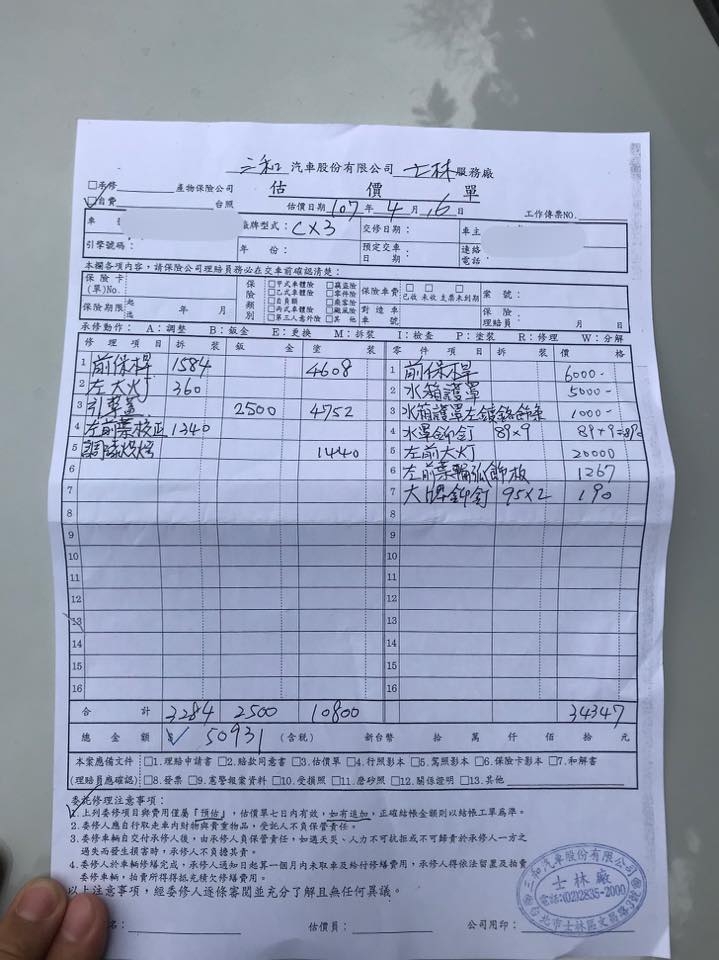 三和 汽車股份有限公司 士林 服務廠
□承修 產物保險公司 估 價 單
□自費 台照 估價日期 107 年 4 月 16 日 工作傳票NO.
車 廠牌型式： CX3 交修日期： 車主
引擎號碼： 年 份： 預定交車日 期： 連絡電話
本欄各項內容，請保險公司理賠員務必在交車前確認清楚：
保險卡(單)No. 保險類別 □甲式車體險 □竊盜險 保險車費 □已收 □未收 □支票未到期 案 號：
□乙式車體險 □零件險
□自負額 □乘客險
保險期限 起 迄 年 月 □丙式車體險 □颱風險 對造車車號 保險理賠員 月 日
□第三人意外險 □其 他
承修動作： A：調整 B：鈑金 E：更換 M：拆裝 I：檢查 P：塗裝 R：修理 W：分解
修理項目 拆 裝 鈑 金 塗 裝 零件項目 拆 裝 價 格
1 前保桿 1584 4608 1 前保桿 6000-
2 左大灯 360 2 水箱護罩 5000-
3 引擎蓋 2500 4752 3 水箱護罩左鍍鉻飾條 1000-
4 左前葉校正 1340 4 水罩鉚釘 89×9 89×9=890
5 調漆烘烤 1440 5 左前大灯 20000
6 6 左前葉輪弧飾板 1267
7 7 大牌鉚釘 95×2 190
8 8
9 9
10 10
11 11
12 12
13 13
14 14
15 15
16 16
合 計 3284 2500 10800 34347
總 金 額 $ 50931 (含稅) 新台幣 拾 萬 仟 佰 拾 元
本案應備文件 □1.理賠申請書 □2.賠款同意書 □3.估價單 □4.行照影本 □5.駕照影本 □6.保險卡影本 □7.和解書
(理賠員應確認) □8.發票 □9.憲警報案資料 □10.受損照 □11.磨砂照 □12.關係證明 □13.其他
委託修理注意事項：
1.上列委修項目與費用僅屬『預估』，估價單七日內有效，如有追加，正確結帳金額則以結帳工單為準。
2.委修人應自行取走車內財物與貴重物品，受託人不負保管責任。
3.委修車輛自交付承修人後，由承修人負保管責任，如遇天災、人力不可抗拒或不可歸責於承修人一方之
過失而發生損害時，承修人不負擔其責。
4.委修人於車輛修繕完成，承修人通知日起算一個月內未取車及給付修繕費用，承修人得依法留置及拍賣
委修車輛，拍賣所得得抵充積欠修繕費用。
以上注意事項，經委修人逐條審閱並充分了解且無任何異議。
名： 估價員： 公司用印：
三和汽車股份有限公司
士林廠
電話:(02)2835-2000
台北市士林區文林路3號